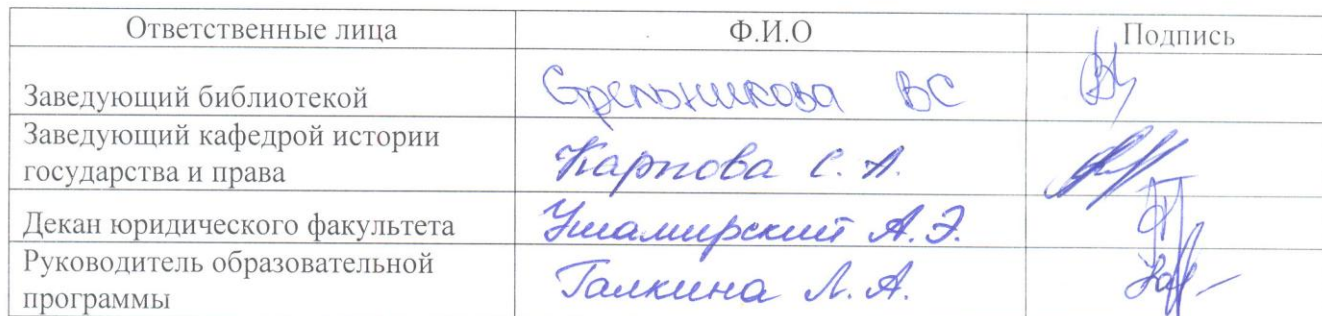 Ответственные лица Ф.И.О Подпись
Заведующий библиотекой Стрельникова ВС
Заведующий кафедрой истории
государства и права Карпова С. А.
Декан юридического факультета Ушамирский А.Э.
Руководитель образовательной
программы Галкина Л. А.